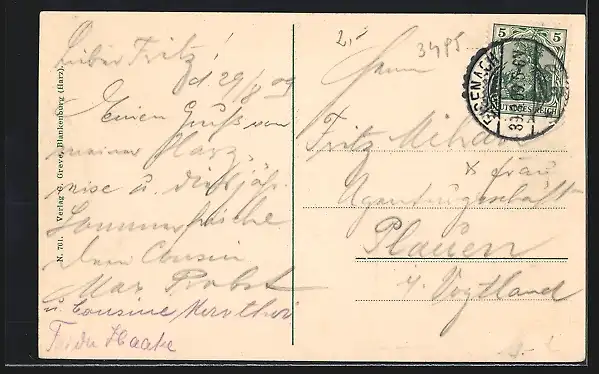 Lieber Fritz!
d. 29/8 09
Einen Gruß von
meiner Harz
reise u. diesjäh.
Sommerfrische
Dein Cousin
Max Probst
u. Cousine
Haake
N. 701. Verlag G. Greve, Blankenburg (Harz).
2,-
3485
5 5
DEUTSCHES REICH
EISENACH
Herrn
Fritz
x Frau
Agenturgeschäft
Plauen
i. Vogtland